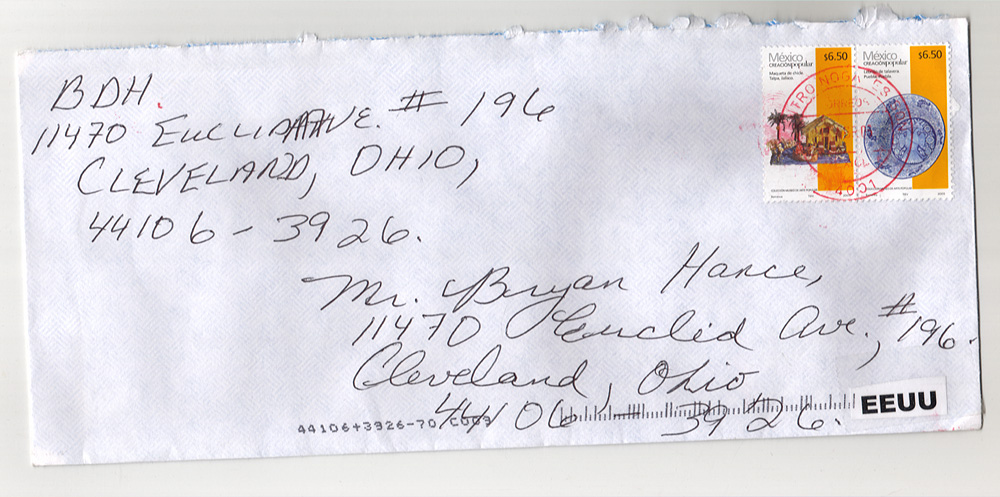 BDH.
11470 EUCLID AVE. # 196
CLEVELAND, OHIO,
44106 - 3926.
México
CREACIÓN popular
$6.50
Maqueta de chicle,
Talpa, Jalisco.
México
CREACIÓN popular
$6.50
Mr. Bryan Hance,
11470 Euclid Ave., #196.
Cleveland, Ohio
44106 - 3926.
EEUU
44106+3926-70 C009